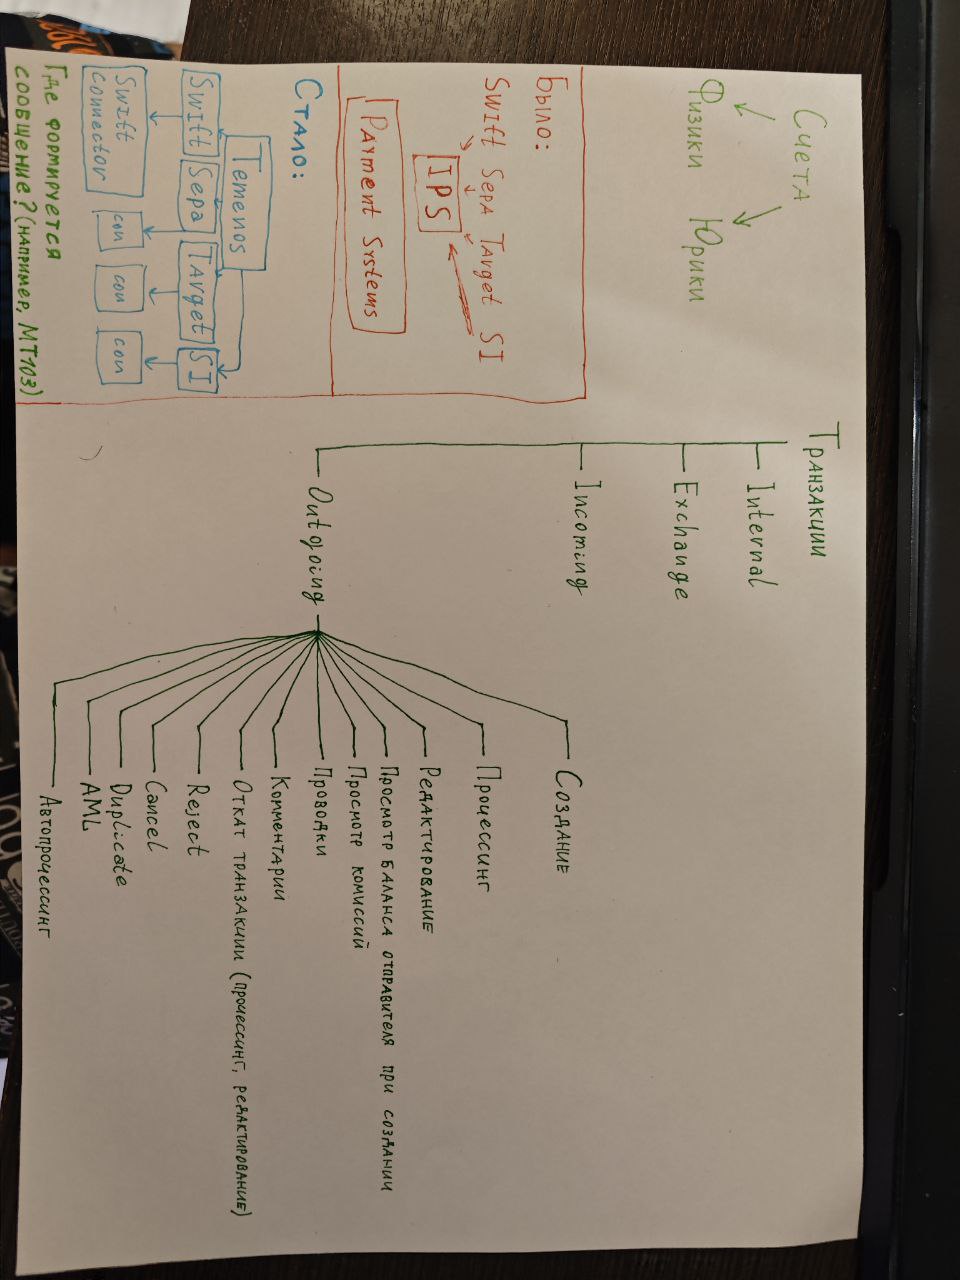 Счета
Физики Юрики
Было:
Swift Sepa Target SI
IPS
Payment Systems
Стало:
Temenos
Swift Sepa Target SI
Swift
connector
con con con
Где формируется
сообщение? (например, MT103)
Транзакции
Internal
Exchange
Incoming
Outgoing
Создание
Процессинг
Редактирование
Просмотр баланса отправителя при создании
Просмотр комиссий
Проводки
Комментарии
Откат транзакции (процессинг, редактирование)
Reject
Cancel
Duplicate
AML
Автопроцессинг